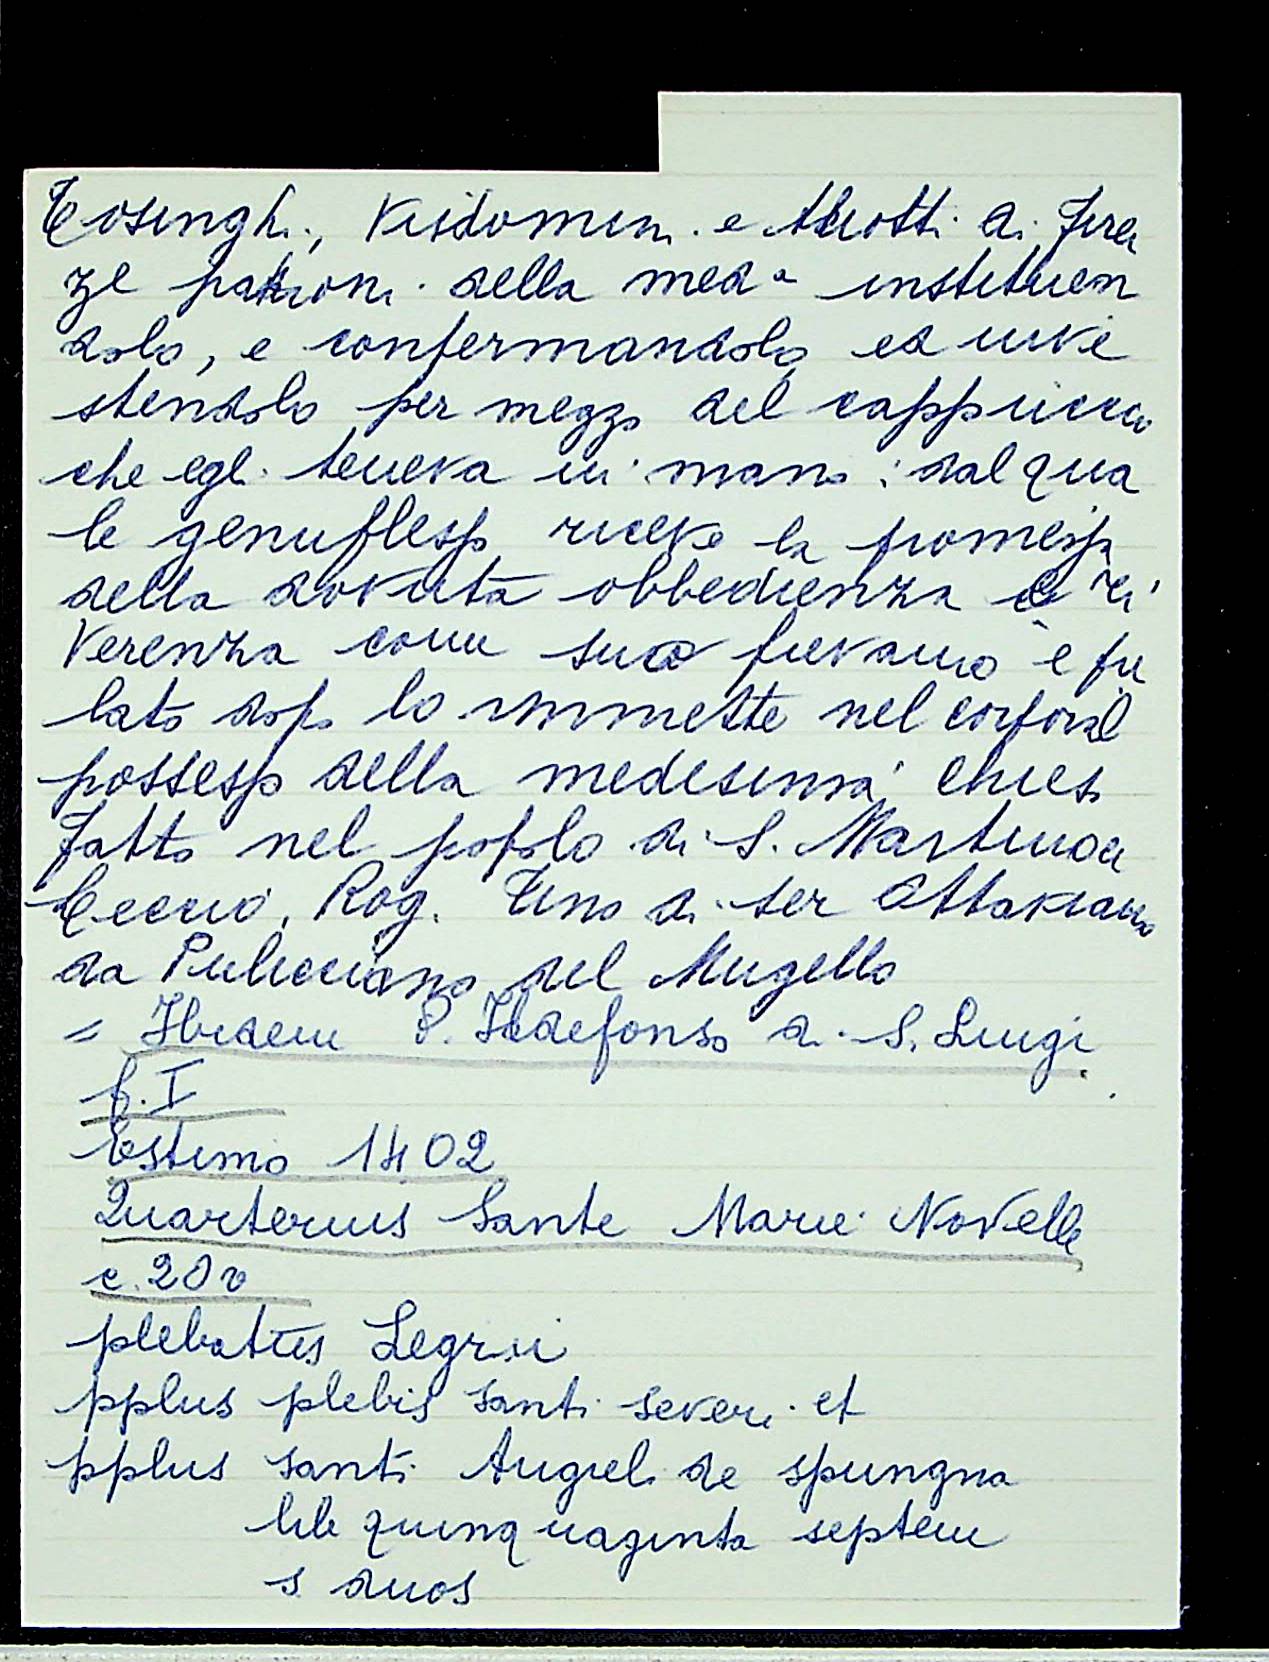 Tosinghi, Visdomini e Aliotti di Firen
ze patroni della meda instituen
dolo, e confermandolo ed inve
stendolo per mezzo del cappuccio
che egli teneva in mano: dal qua
le genuflesso riceve la promessa
della dovuta obbedienza e ri
verenza come suo pievano e pre
lato dopo lo immette nel corporal
possesso della medesima chiesa
Fatto nel popolo di S. Martino a
Rog. Uno di ser Attaviano
da Pulicciano del Mugello
= Ibidem P. Ildefonso di S. Luigi
p. I
Estimo 1402
Quarterius Sante Marie Novelle
c. 20 v
plebatus Legrii
pplus plebis santi severi et
pplus santi Angieli de spungna
lib quinquaginta septem
s duos